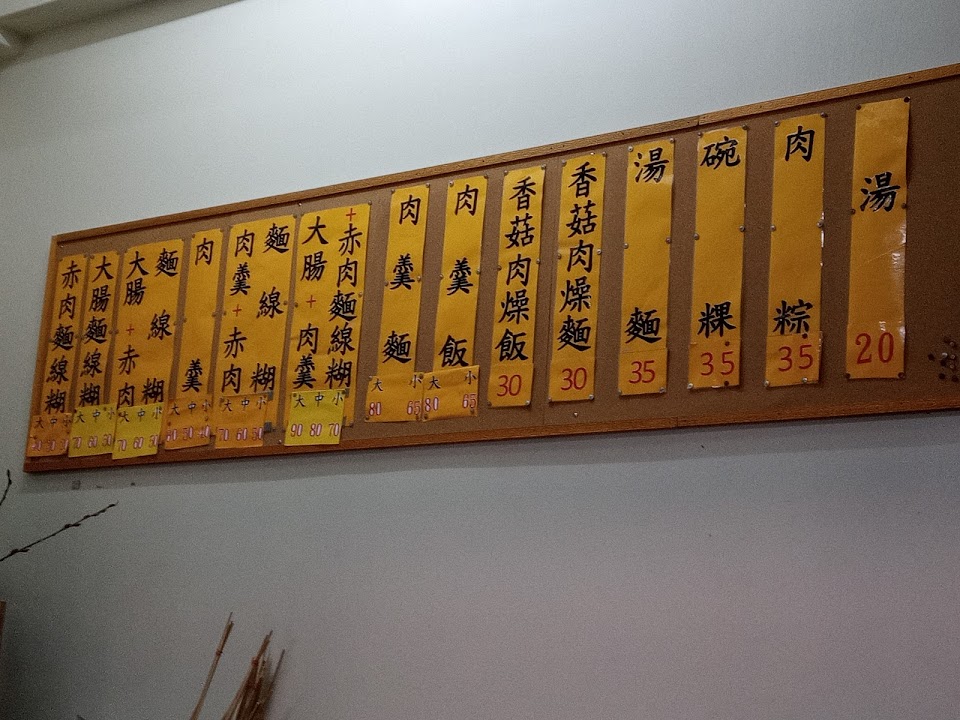 赤肉麵線糊
大中小
大腸麵線糊
大中小
70 60 50
大腸+赤肉
麵線糊
大中小
70 60 50
肉羹
大中小
60 50 40
肉羹+赤肉
麵線糊
大中小
70 60 50
大腸+肉羹
+赤肉麵線糊
大中小
90 80 70
肉羹麵
大 小
80 65
肉羹飯
大 小
80 65
香菇肉燥飯
30
香菇肉燥麵
30
湯麵
35
碗粿
35
肉粽
35
湯
20